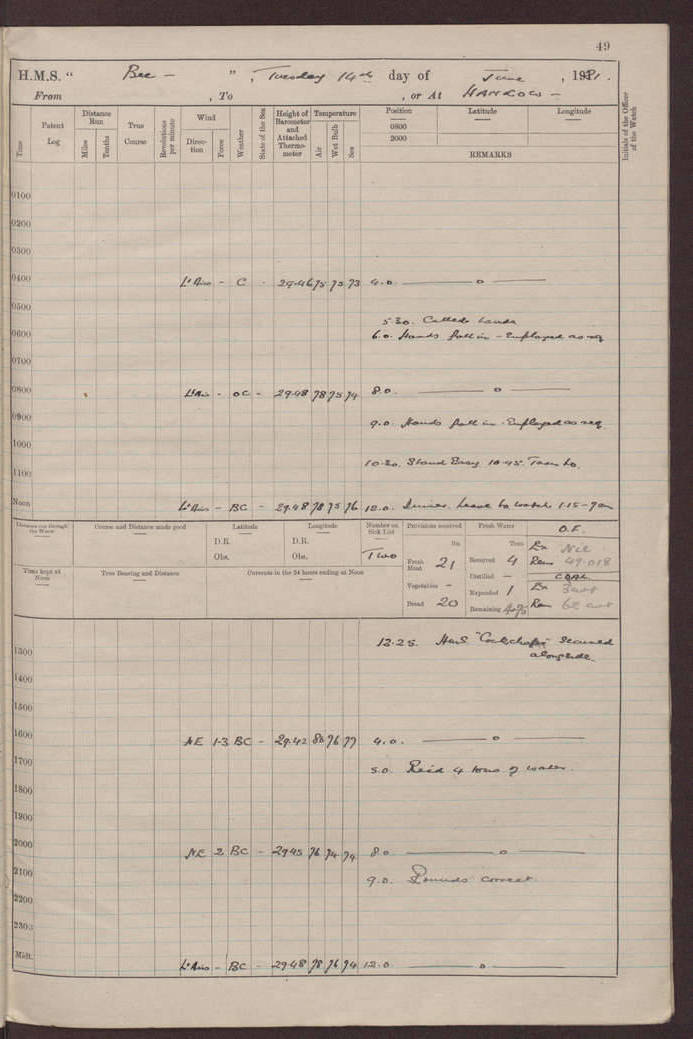 49
H.M.S. " Bee - ", Tuesday 14th day of June, 1921.
From , To , or At HANKOW -
Time
Patent Log
Distance Run
Miles
Tenths
True Course
Revolutions per minute
Wind
Direction
Force
Weather
State of the Sea
Height of Barometer and Attached Thermometer
Temperature
Air
Wet Bulb
Sea
Position Latitude Longitude
0800
2000
REMARKS
Initials of the Officer of the Watch
0100
0200
0300
0400 Lt Airs - C - 29.46 75 75 73 4.0. — o —
0500
5.30. Called hands
0600 6.0. Hands fall in - Employed as req
0700
0800 Lt Airs - OC - 29.48 78 75 74 8.0. — o —
0900 9.0. Hands fall in - Employed as req.
1000
10.30. Stand Easy. 10.45. Turn to.
1100
Noon Lt Airs - BC - 29.48 78 75 76 12.0. Dinner. Leave to watch 1.15 - 7am
Distance run through the Water
Course and Distance made good
Latitude
D.R.
Obs.
Longitude
D.R.
Obs.
Number on Sick List
Two
Provisions received
lbs.
Fresh Meat 21
Vegetables -
Bread 20
Fresh Water
Tons
Received 4
Distilled -
Expended 1
Remaining
O.F.
Ex Nil
Rem 49.018
COAL
Ex 3 cwt
Rem 62 cwt
Time kept at Noon
True Bearing and Distance
Currents in the 24 hours ending at Noon
1300 13.25. H.M.S. "Cockchafer" secured
alongside.
1400
1500
1600 NE 1-3 BC - 29.42 80 76 77 4.0. — o —
1700 5.0. Rec'd 4 tons of water.
1800
1900
2000 NE 2 BC - 29.45 76 74 74 8.0. — o —
2100 9.0. Rounds correct.
2200
2300
Midt. Lt Airs - BC - 29.48 78 76 74 12.0 — o —